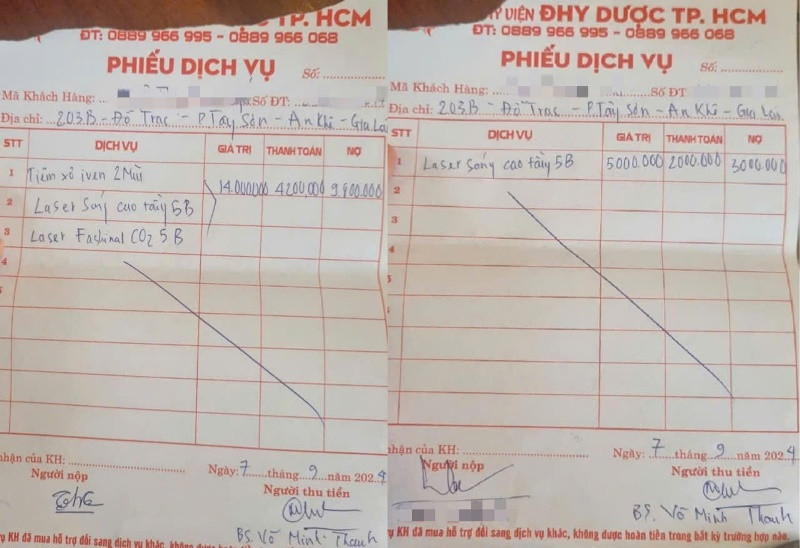 VIỆN ĐHY DƯỢC TP. HCM
ĐT: 0889 966 995 - 0889 966 068
PHIẾU DỊCH VỤ
Số:
Mã Khách Hàng:
Số ĐT:
Địa chỉ: 203B - Đỗ Trạc - P. Tây Sơn - An Khê - Gia Lai
STT DỊCH VỤ GIÁ TRỊ THANH TOÁN NỢ
1 Tiêm xơ 2 Mũi
14.000.000 4200.000 9.800.000
2 Laser Sóng cao tầng 5B
3 Laser CO2 5B
4
nhận của KH:
Ngày: 7 tháng 9 năm 2024
Người nộp
Người thu tiền
BS. Võ Minh Thanh
vụ KH đã mua hỗ trợ đổi sang dịch vụ khác, không được hoàn tiền trong bất kỳ trường hợp nào.
VIỆN ĐHY DƯỢC TP. HCM
ĐT: 0889 966 995 - 0889 966 068
PHIẾU DỊCH VỤ
Số:
Mã Khách Hàng:
Số ĐT:
Địa chỉ: 203B - Đỗ Trạc - P. Tây Sơn - An Khê - Gia Lai
STT DỊCH VỤ GIÁ TRỊ THANH TOÁN NỢ
1 Laser Sóng cao tầng 5B 5000.000 2000.000 3000.000
2
3
4
5
nhận của KH:
Ngày: 7 tháng 9 năm 2024
Người nộp
Người thu tiền
BS. Võ Minh Thanh
vụ KH đã mua hỗ trợ đổi sang dịch vụ khác, không được hoàn tiền trong bất kỳ trường hợp nào.